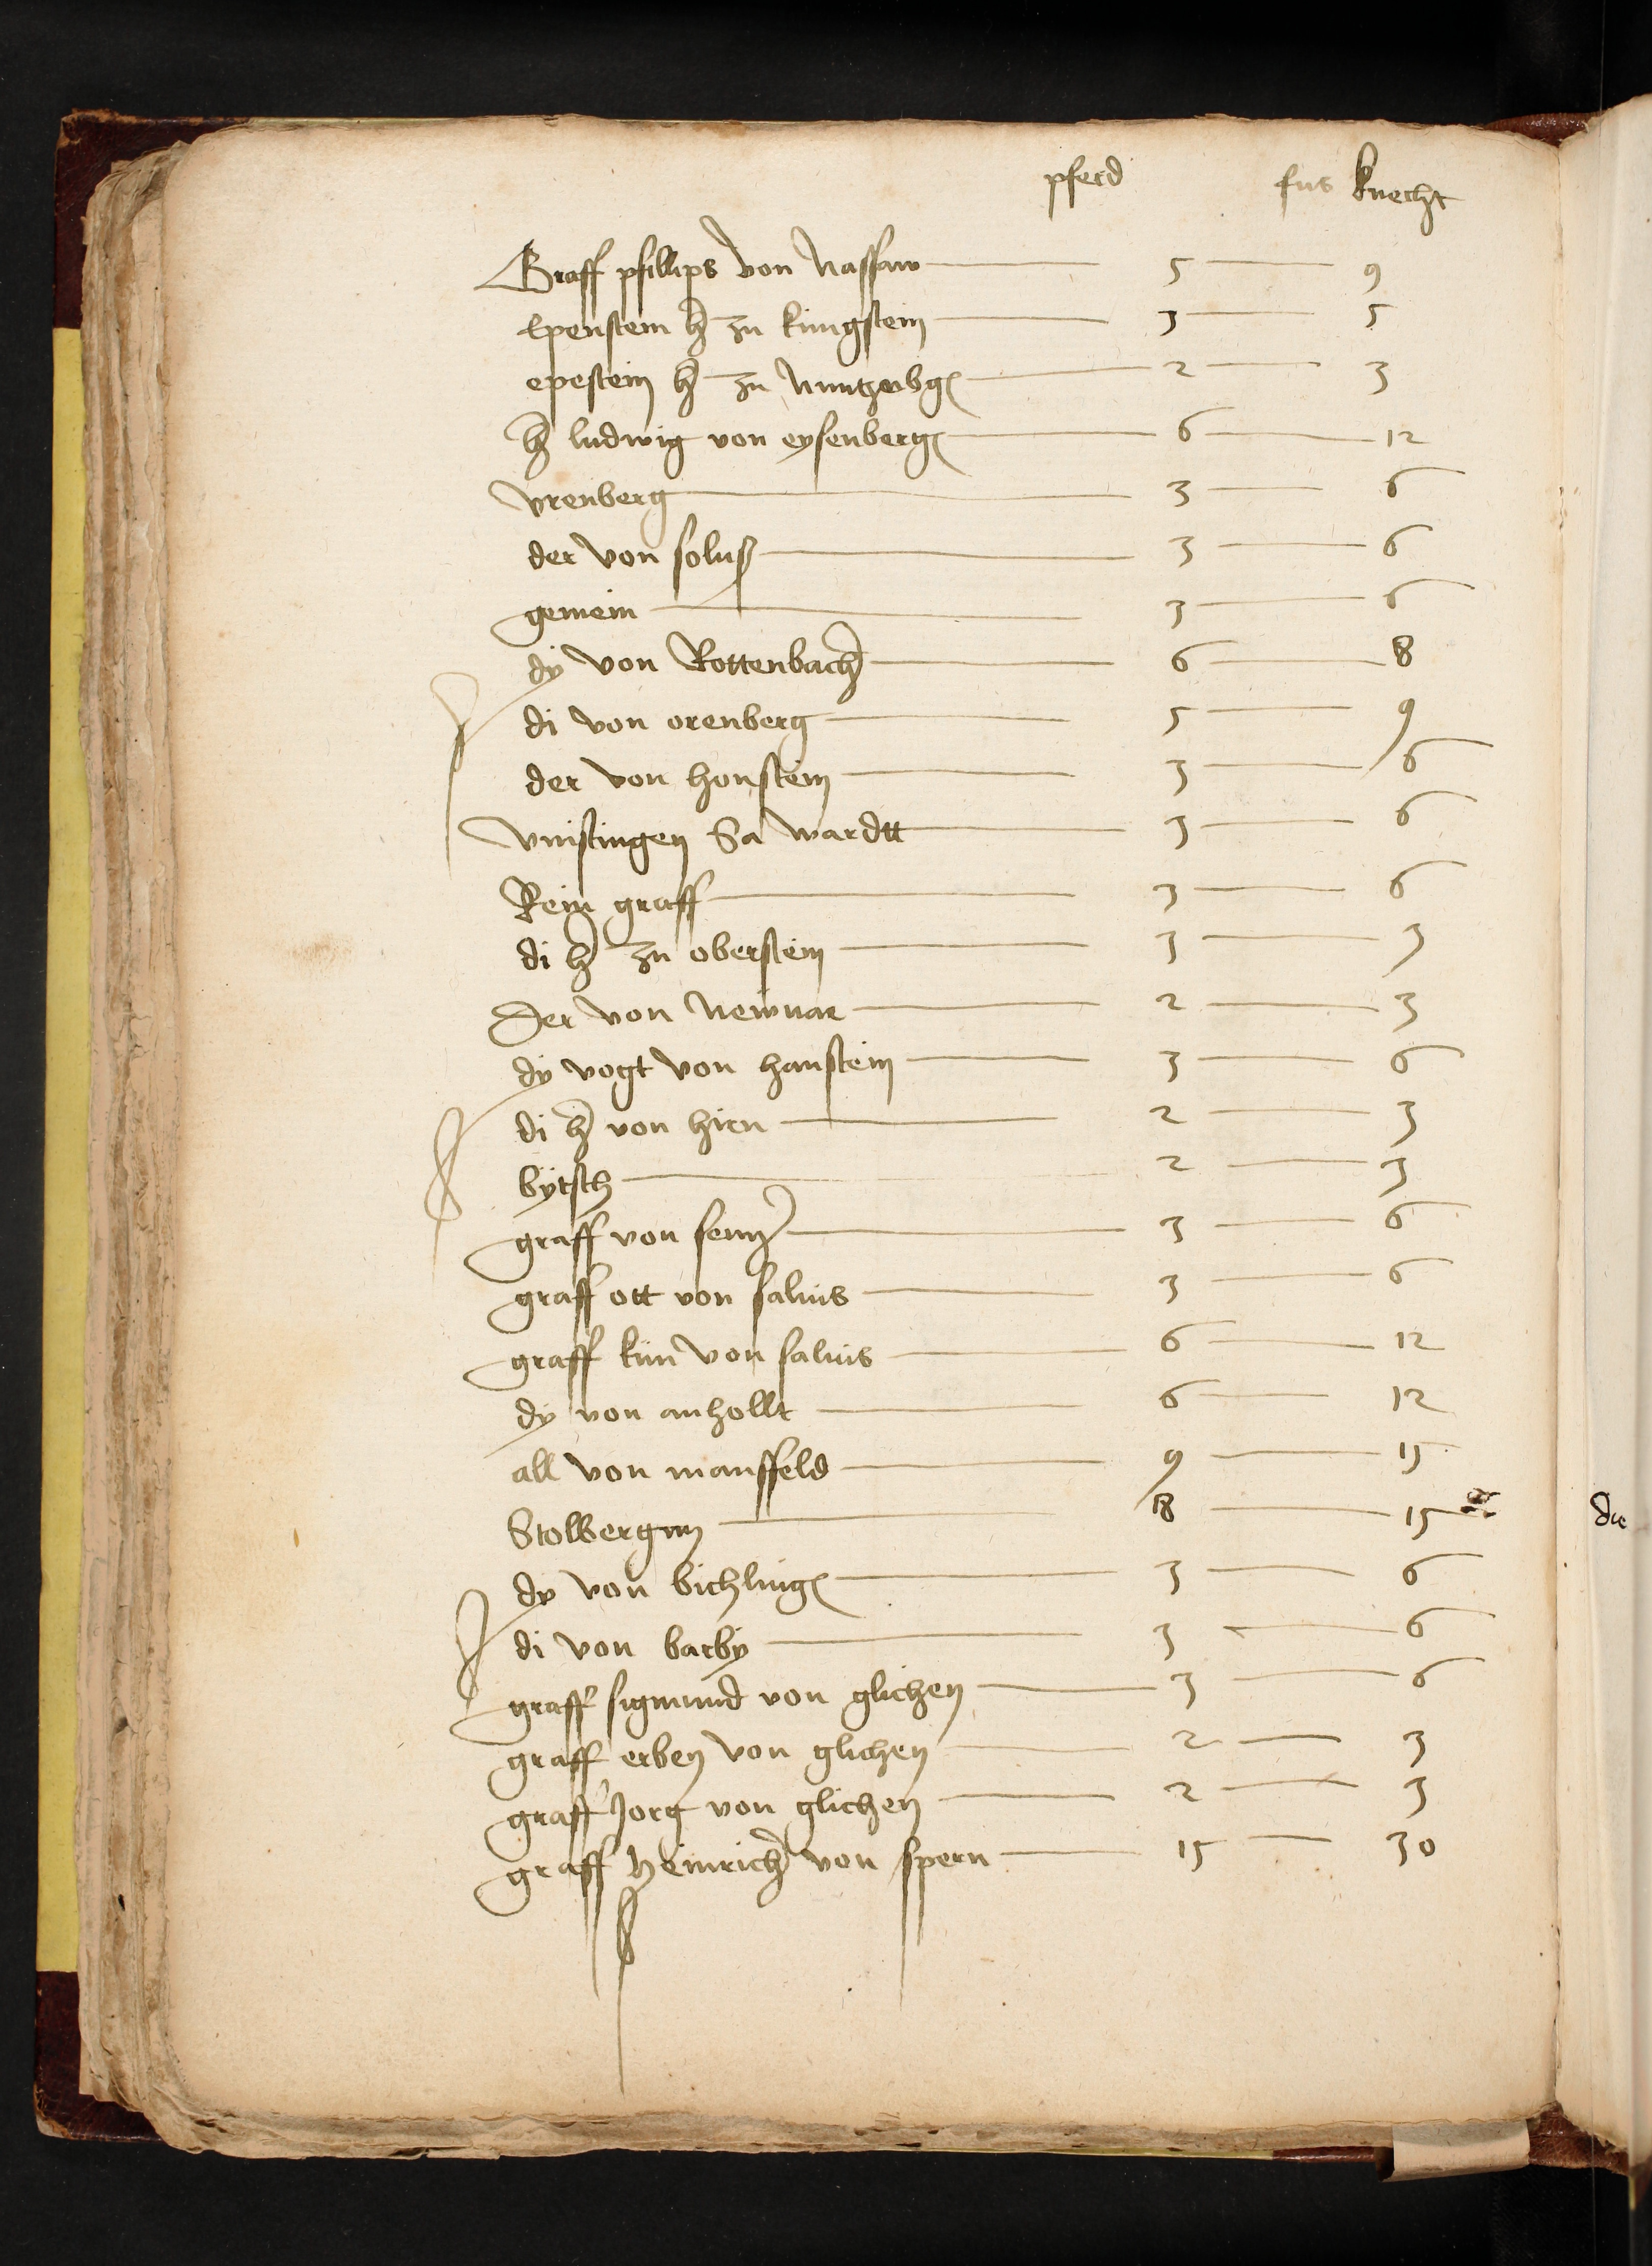 pferd fus knecht
Graff pfillips von Nassaw 5 9
Epenstein h zu kungstein 3 5
epestein h zu 2 3
h ludwig von eysenberg 6 12
vrenberg 3 6
der von solms 3 6
gemein 3 6
dy von Rottenbach 6 8
di von orenberg 5 9
der von honstein 3 6
vinstingen Sa wardtt 3 6
Rein graff 3 6
di h zu oberstein 3 3
Der von Newnar 2 3
dy vogt von hanstein 3 6
di h von hirn 2 3
bytsch 2 3
graff von 3 6
graff ott von salms 3 6
graff kün von salms 6 12
dy von anhollt 6 12
all von mansfeld 9 15
Stolberg 8 15
dy von bichling 3 6
di von barby 3 6
graff sigmund von glichen 3 6
graff erben von glichen 2 3
graff Jorg von glichen 2 3
graff heinrich von spern 15 30